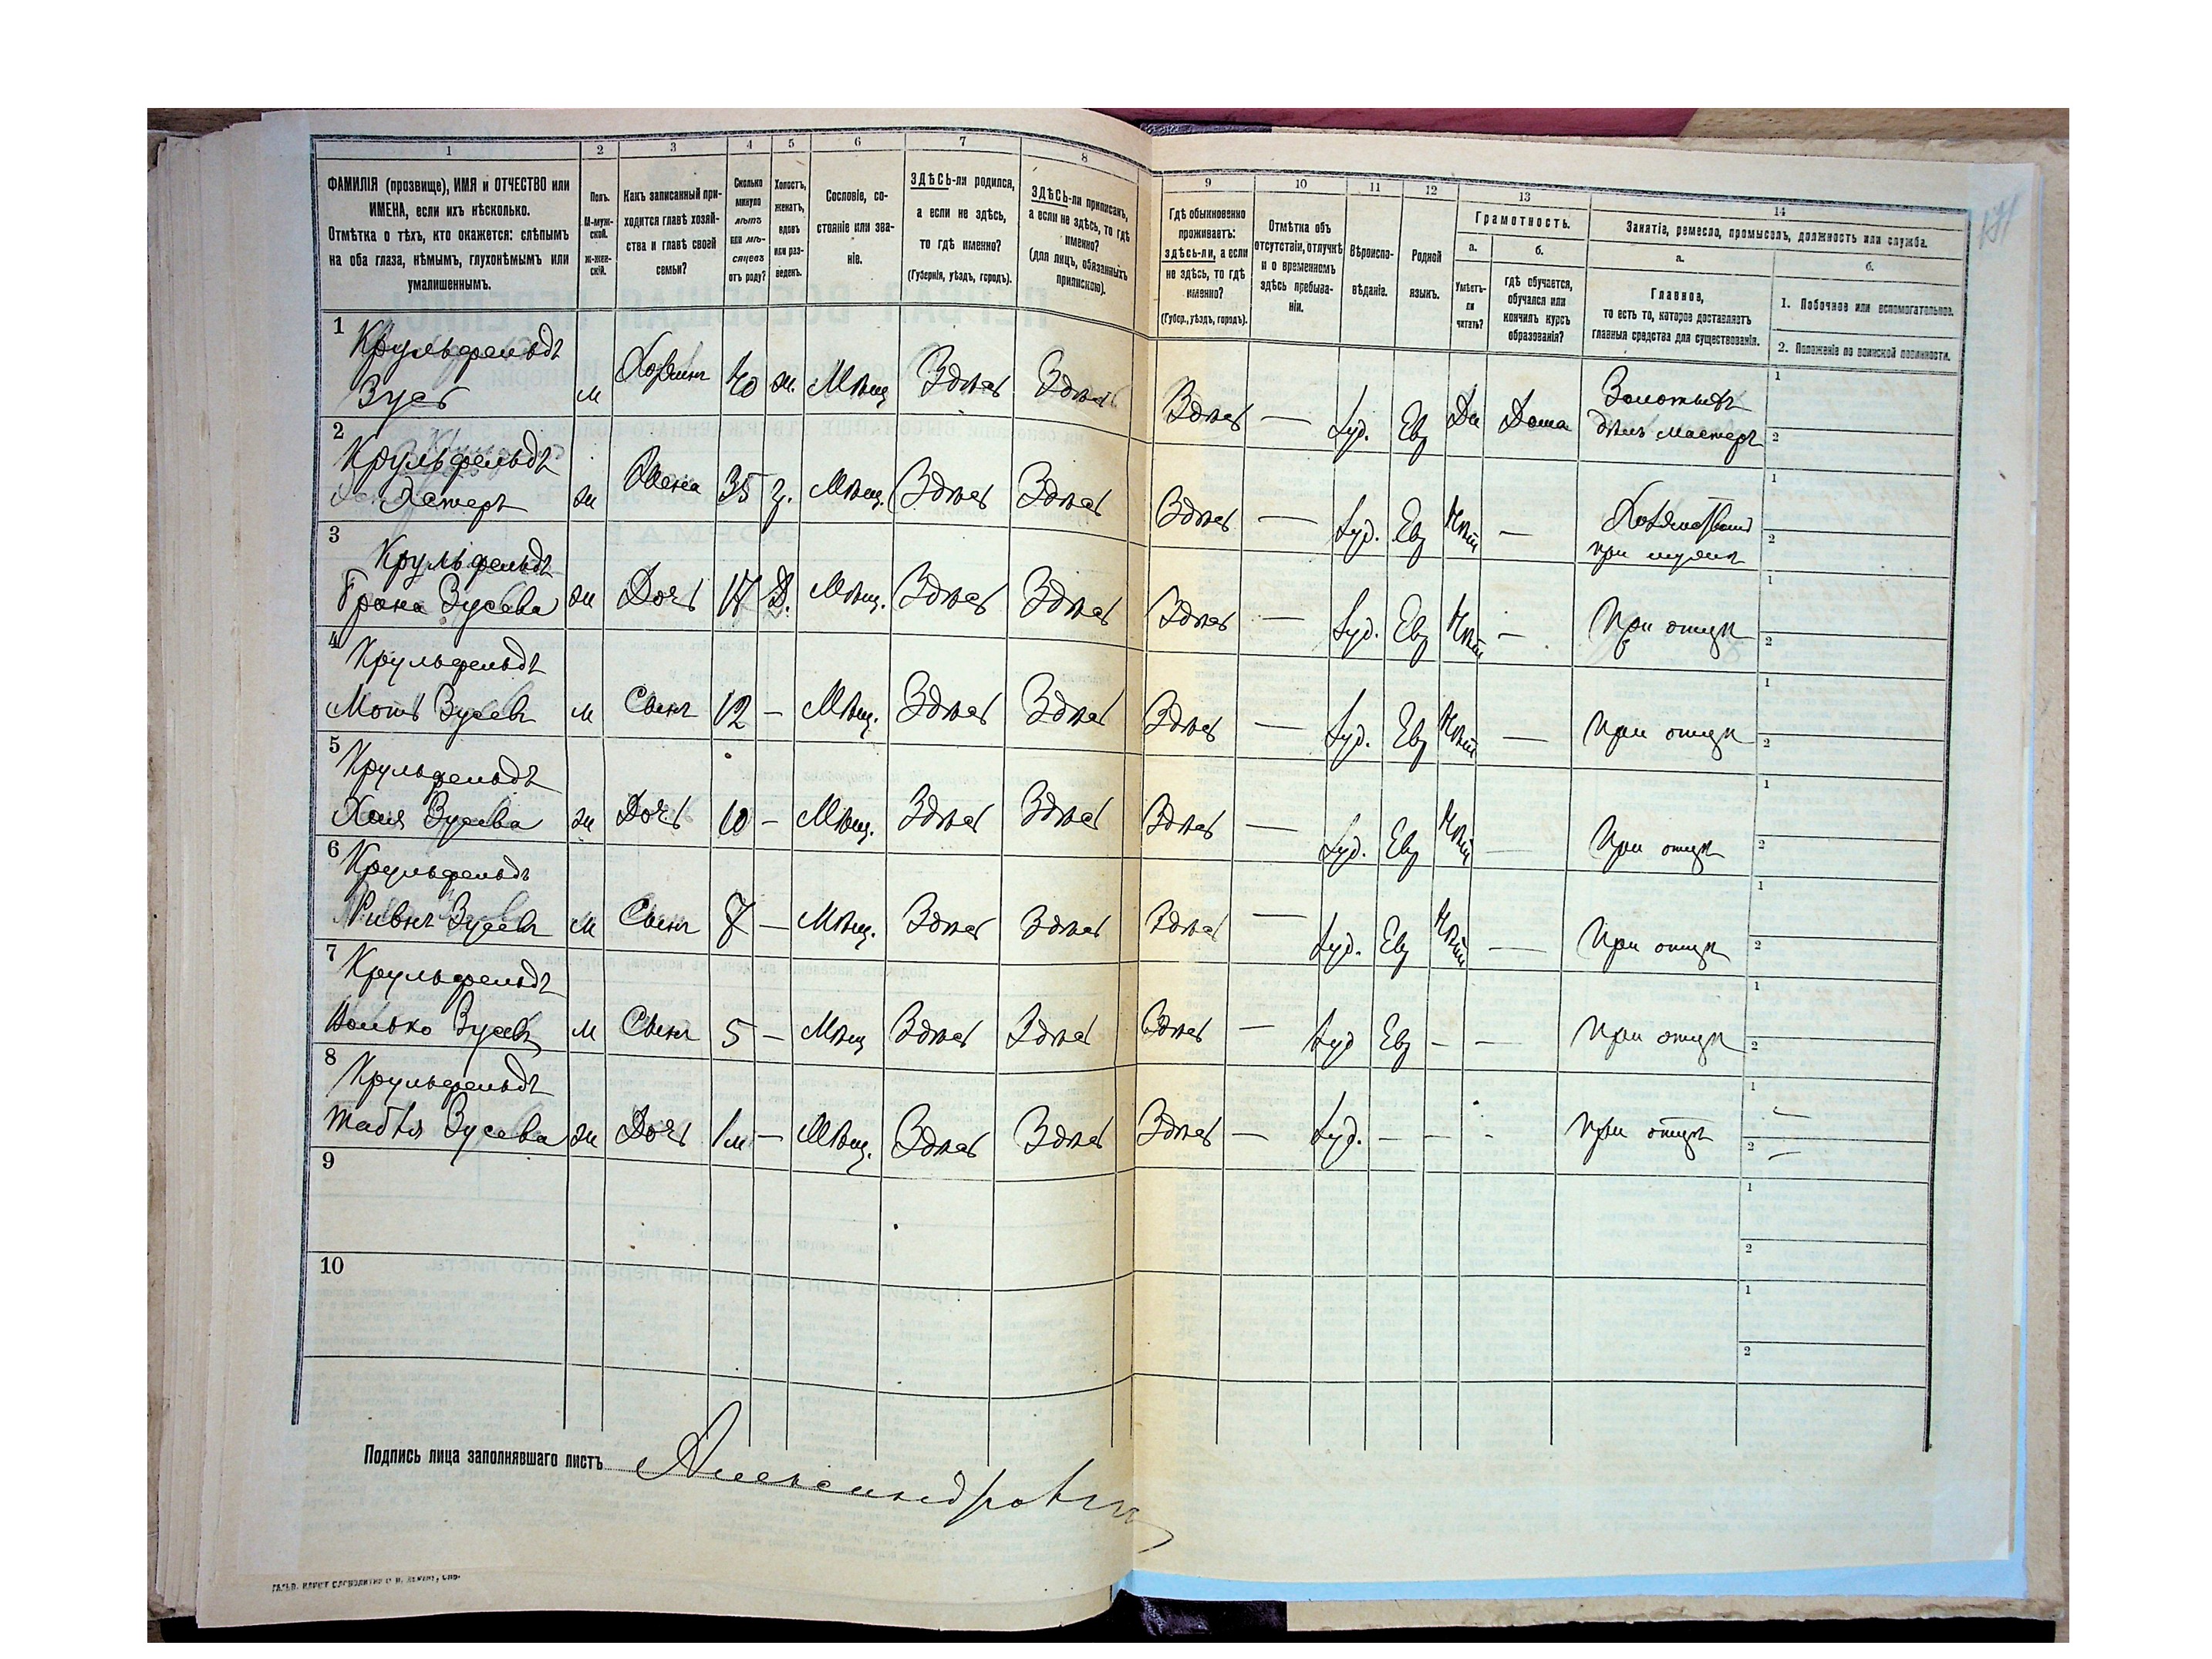 1 2 3 4 5 6 7 8
ФАМИЛІЯ (прозвище), ИМЯ и ОТЧЕСТВО или
ИМЕНА, если ихъ нѣсколько.
Отмѣтка о тѣхъ, кто окажется: слѣпымъ
на оба глаза, нѣмымъ, глухонѣмымъ или
умалишеннымъ.
Полъ.
М-муж-
ской.
ж-жен-
скій.
Какъ записанный при-
ходится главѣ хозяй-
ства и главѣ своей
семьи?
Сколько
минуло
лѣтъ
или мѣ-
сяцевъ
отъ роду?
Холостъ,
женатъ,
вдовъ
или раз-
веденъ.
Сословіе, со-
стояніе или зва-
ніе.
ЗДѢСЬ-ли родился,
а если не здѣсь,
то гдѣ именно?
(Губернія, уѣздъ, городъ).
ЗДѢСЬ-ли приписанъ,
а если не здѣсь, то гдѣ
именно?
(для лицъ, обязанныхъ
припискою).
9 10 11 12 13 14
Гдѣ обыкновенно
проживаетъ:
здѣсь-ли, а если
не здѣсь, то гдѣ
именно?
(Губер., уѣздъ, городъ).
Отмѣтка объ
отсутствіи, отлучкѣ
и о временномъ
здѣсь пребыва-
ніи.
Вѣроиспо-
вѣданіе.
Родной
языкъ.
Грамотность.
а.
Умѣетъ-
ли
читать?
б.
гдѣ обучается,
обучался или
кончилъ курсъ
образованія?
Занятіе, ремесло, промыселъ, должность или служба.
а.
Главное,
то есть то, которое доставляетъ
главныя средства для существованія.
б.
1. Побочное или вспомогательное.
2. Положеніе по воинской повинности.
171
1 Крульфельдъ
Зусь м Хозяинъ 40 ж. Мѣщ Здѣсь Здѣсь Здѣсь — Іуд. Евр Да Дома Золотыхъ
дѣлъ мастеръ 1 2
2 Крульфельдъ
Эстеръ ж Жена 35 з. Мѣщ. Здѣсь Здѣсь Здѣсь — Іуд. Евр Нѣт —
при мужѣ 1 2
3 Крульфельдъ
Зусева ж Дочь 17 Д. Мѣщ. Здѣсь Здѣсь Здѣсь — Іуд. Евр Нѣт — При отцѣ 1 2
4 Крульфельдъ
Моть Зусевъ м Сынъ 12 — Мѣщ. Здѣсь Здѣсь Здѣсь — Іуд. Евр Нѣт — При отцѣ 1 2
5 Крульфельдъ
Хая Зусева ж Дочь 10 — Мѣщ. Здѣсь Здѣсь Здѣсь — Іуд. Евр Нѣт — При отцѣ 1 2
6 Крульфельдъ
Ривнъ Зусевъ м Сынъ 7 — Мѣщ. Здѣсь Здѣсь Здѣсь — Іуд. Евр Нѣт — При отцѣ 1 2
7 Крульфельдъ
Волько Зусевъ м Сынъ 5 — Мѣщ Здѣсь Здѣсь Здѣсь — Іуд Евр — — При отцѣ 1 2
8 Крульфельдъ
Зусева ж Дочь 1 м — Мѣщ. Здѣсь Здѣсь Здѣсь — Іуд. — — - При отцѣ 1 2
9 1 2
10 1 2
Подпись лица заполнявшаго листъ